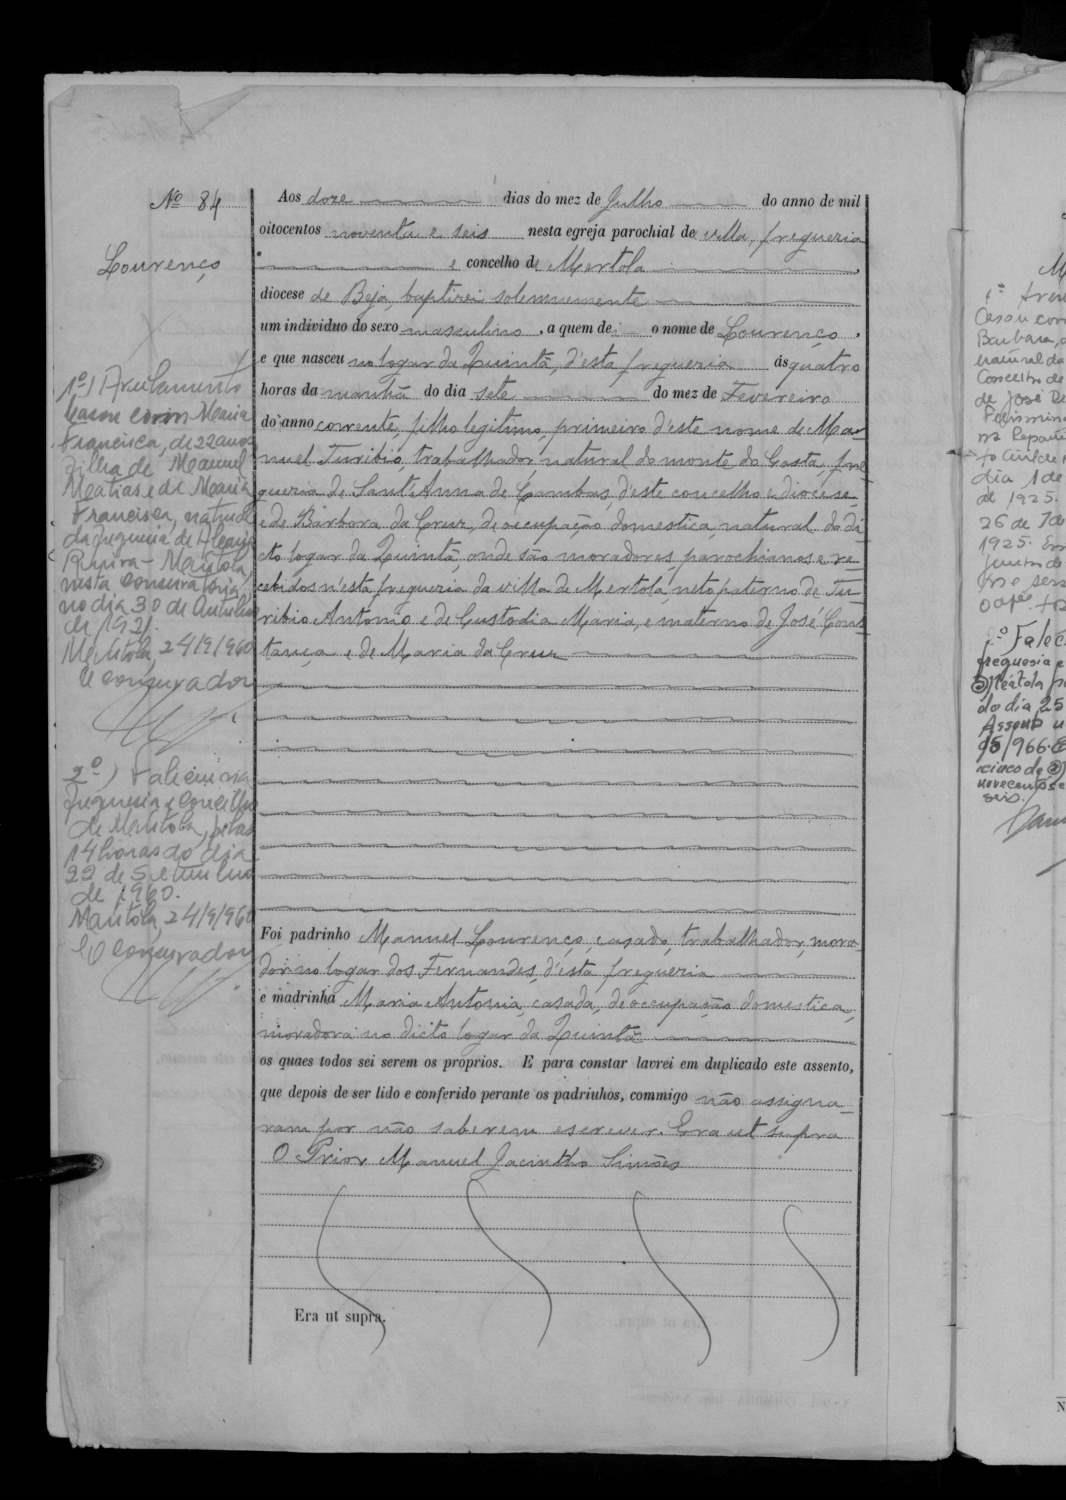 Nº 84
Lourenço
1º) Averbamento
Casou com Maria
Francisca, de 22 anos
Filha de Manuel
Matias e de Maria
Francisca, natural
da freguesia de
Mértola,
nesta Conservatória,
no dia 30 de
de 1921.
Mértola, 24/9/960
O Conservador
2º) Faleceu na
freguesia e Concelho
de Mértola, pelas
14 horas do dia
22 de Setembro
de 1960.
Mértola, 24/9/960
O Conservador
Aos doze dias do mez de Julho do anno de mil
oitocentos noventa e seis nesta egreja parochial de villa, freguezia
e concelho de Mertola
diocese de Beja, baptizei solemnemente
um individuo do sexo masculino, a quem dei o nome de Lourenço,
e que nasceu no logar da Quintã, d'esta freguezia ás quatro
horas da manhã do dia sete do mez de Fevereiro
do anno corrente, filho legitimo, primeiro d'este nome de Ma-
nuel Turibio, trabalhador, natural do monte do Costa, fre
guezia de Sant'Anna de Cambas, d'este concelho e diocese
e de Barbora da Cruz, de occupação domestica, natural do di
cto logar da Quintã, onde são moradores, parochianos e re
cebidos n'esta freguezia da villa de Mertola, neto paterno de Tu-
ribio Antonio e de Custodia Maria, e materno de José Cons
tança e de Maria da Cruz
Foi padrinho Manuel Lourenço, casado, trabalhador, mora
dor no logar dos Fernandes, d'esta freguezia
e madrinha Maria Antonia, casada, de occupação domestica,
moradora no dicto logar da Quintã
os quaes todos sei serem os proprios. E para constar lavrei em duplicado este assento,
que depois de ser lido e conferido perante os padrinhos, commigo não assigna-
ram por não saberem escrever. Era ut supra
O Prior Manuel Jacintho Simões
Era ut supra.
Casou com
Barbara,
natural da
Concelho de
de José
dia 1 de
de 1925.
26 de
1925.
Falec
freguesia e
Mértola
do dia 25
Assento
95/966
novecentos e
seis.